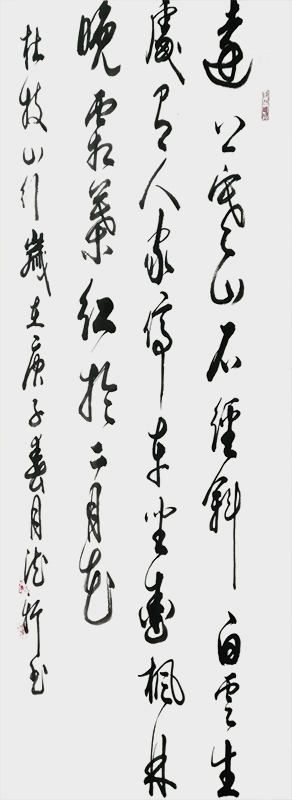 遠上寒山石徑斜白雲生
處有人家停車坐愛楓林
晚霜葉紅於二月花
杜牧山行歲在庚子春月书